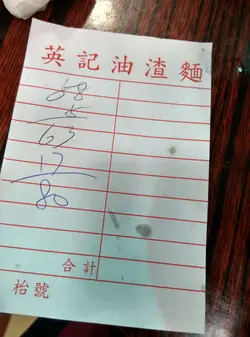 英記油渣麵
68
5
63
17
80
合計
枱號